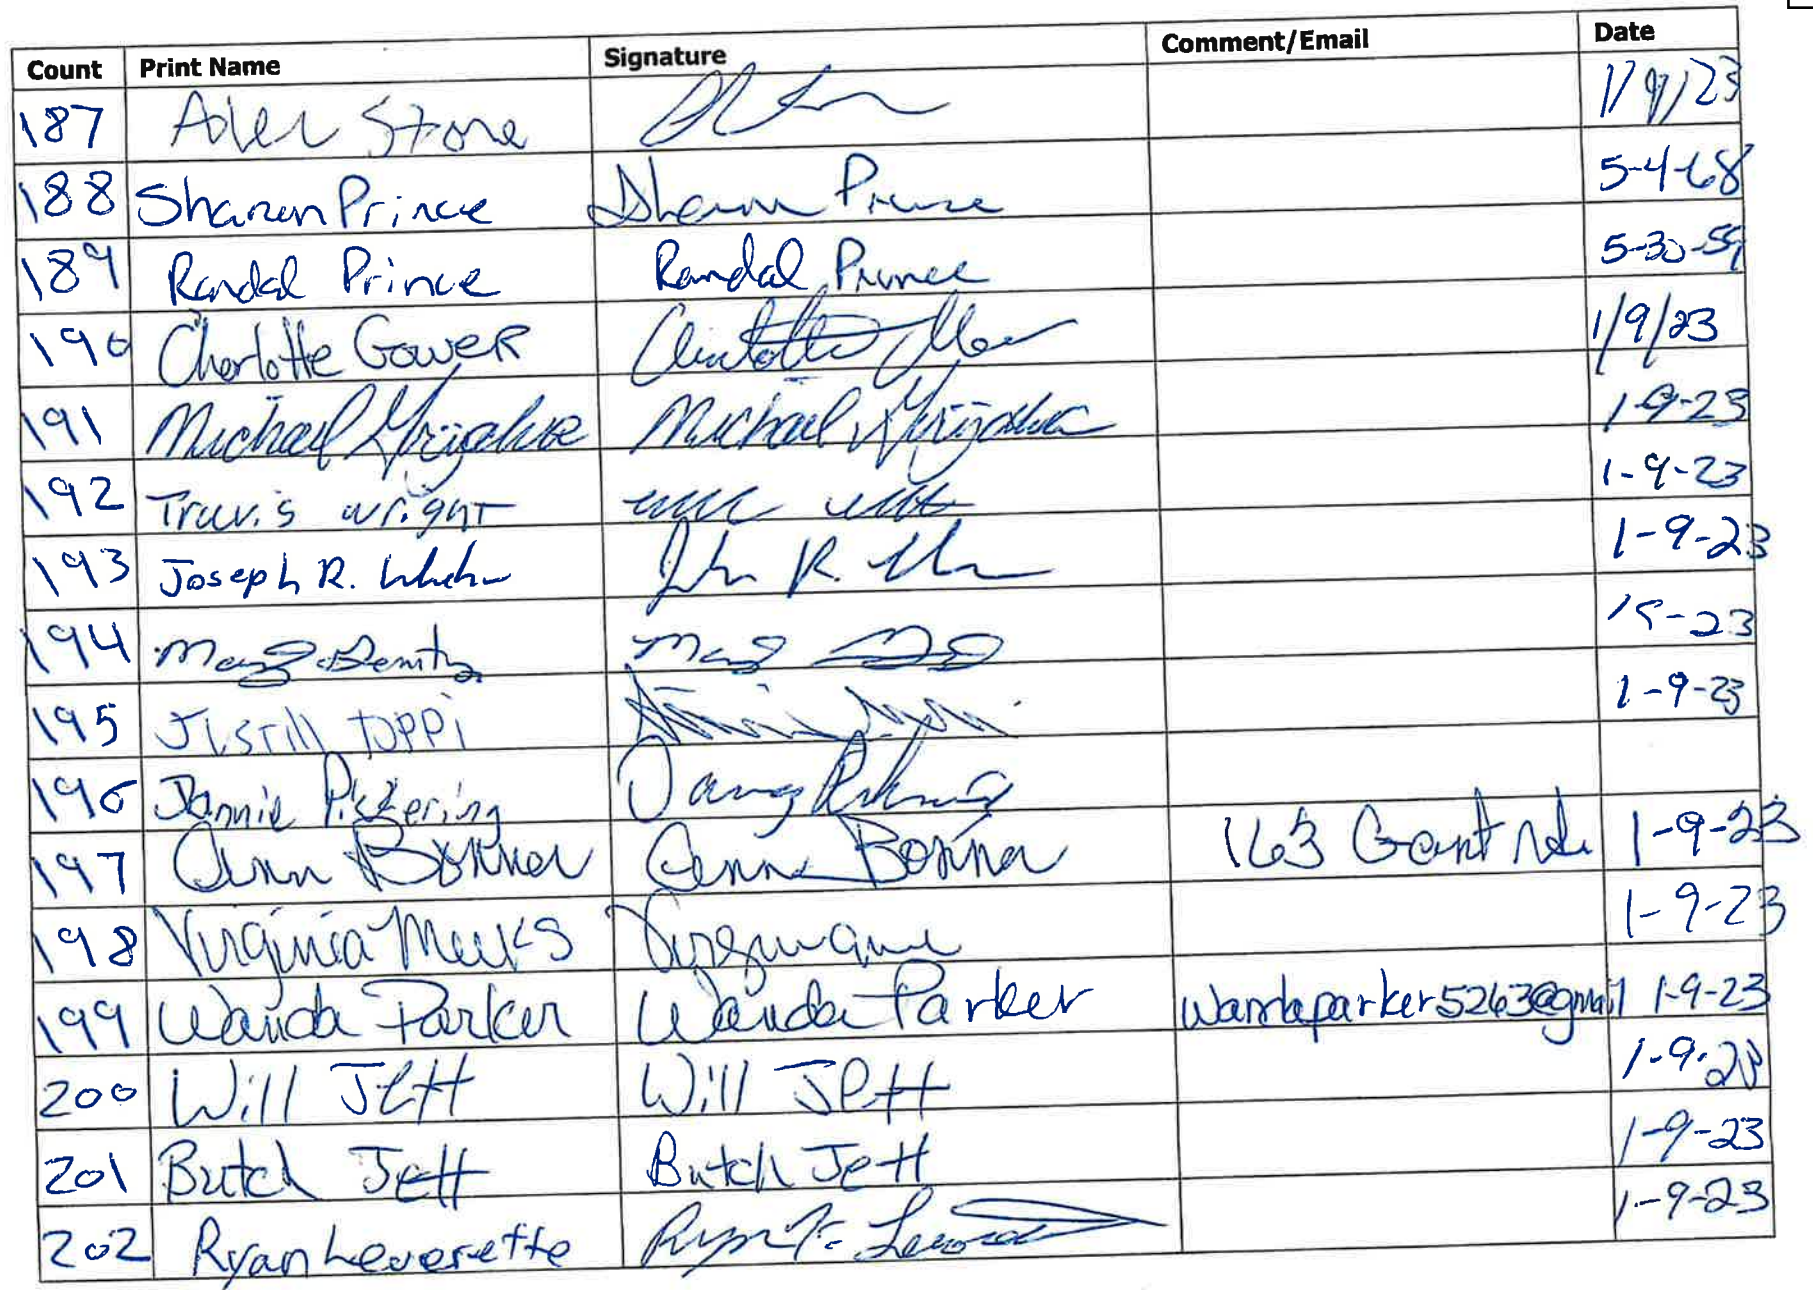 Count Print Name Signature Comment/Email Date
187 Stone 1/9/23
188 Sharon Prince Sharon Prince 5-4-68
189 Randal Prince Randal Prince 5-30-59
190 Charlotte Gower 1/9/23
191 Michael Grijalva Michael Grijalva 1-9-23
192 Travis wright 1-9-23
193 Joseph R. R. 1-9-23
194 -23
195 1-9-23
196 Jannie Pickering
197 Ann Bonner Ann Bonner 163 Gant Rd. 1-9-23
198 Virginia Meeks 1-9-23
199 Wanda Parker Wanda Parker wandaparker5263@gmail 1-9-23
200 Will Jett Will Jett 1-9-23
201 Butch Jett Butch Jett 1-9-23
202 Ryan Leverette Ryan 1-9-23